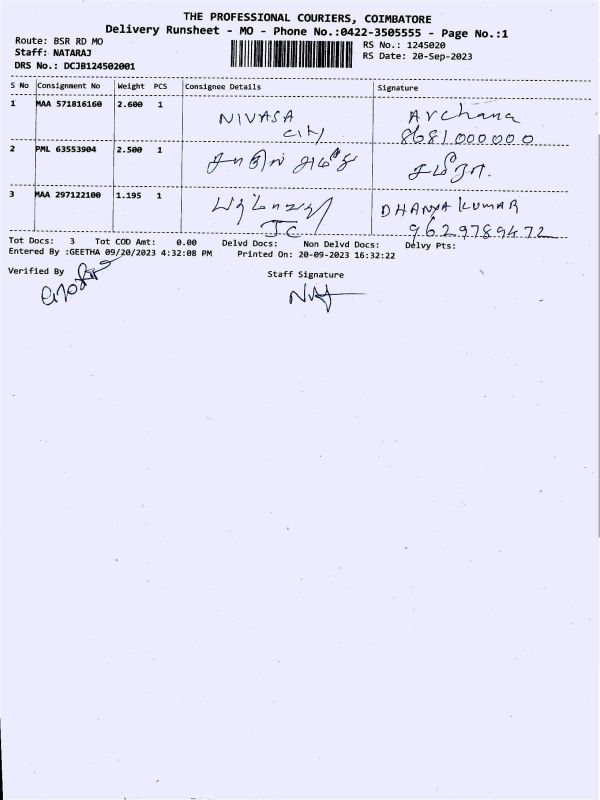 THE PROFESSIONAL COURIERS, COIMBATORE
Delivery Runsheet - MO - Phone No.:0422-3505555 - Page No.:1
Route: BSR RD MO
RS No.: 1245020
Staff: NATARAJ
RS Date: 20-Sep-2023
DRS No.: DCJB124502001
S No Consignment No Weight PCS Consignee Details Signature
1 MAA 571816160 2.600 1 NIVASA Archana
City 8681000000
2 PML 63553904 2.500 1
3 MAA 297122100 1.195 1 DHANYA KUMAR
JC 9629789472
Tot Docs: 3 Tot COD Amt: 0.00 Delvd Docs: Non Delvd Docs: Delvy Pts:
Entered By :GEETHA 09/20/2023 4:32:08 PM Printed On: 20-09-2023 16:32:22
Verified By Staff Signature